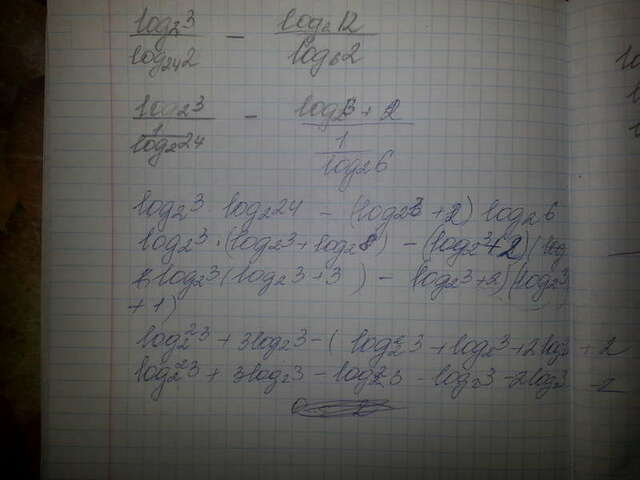 log₂3 / log₂₄2 − log₂12 / log₆2
log₂3 / (1 / log₂24) − (log₂3 + 2) / (1 / log₂6)
log₂3 log₂24 − (log₂3 + 2) log₂6
log₂3 · (log₂3 + log₂8) − (log₂3 + 2) (log
log₂3 (log₂3 + 3) − log₂3 + 2) (log₂3
+ 1)
log₂²3 + 3log₂3 − ( log₂²3 + log₂3 + 2log₂3 + 2
log₂²3 + 3log₂3 − log₂²3 − log₂3 − 2log₂3 − 2